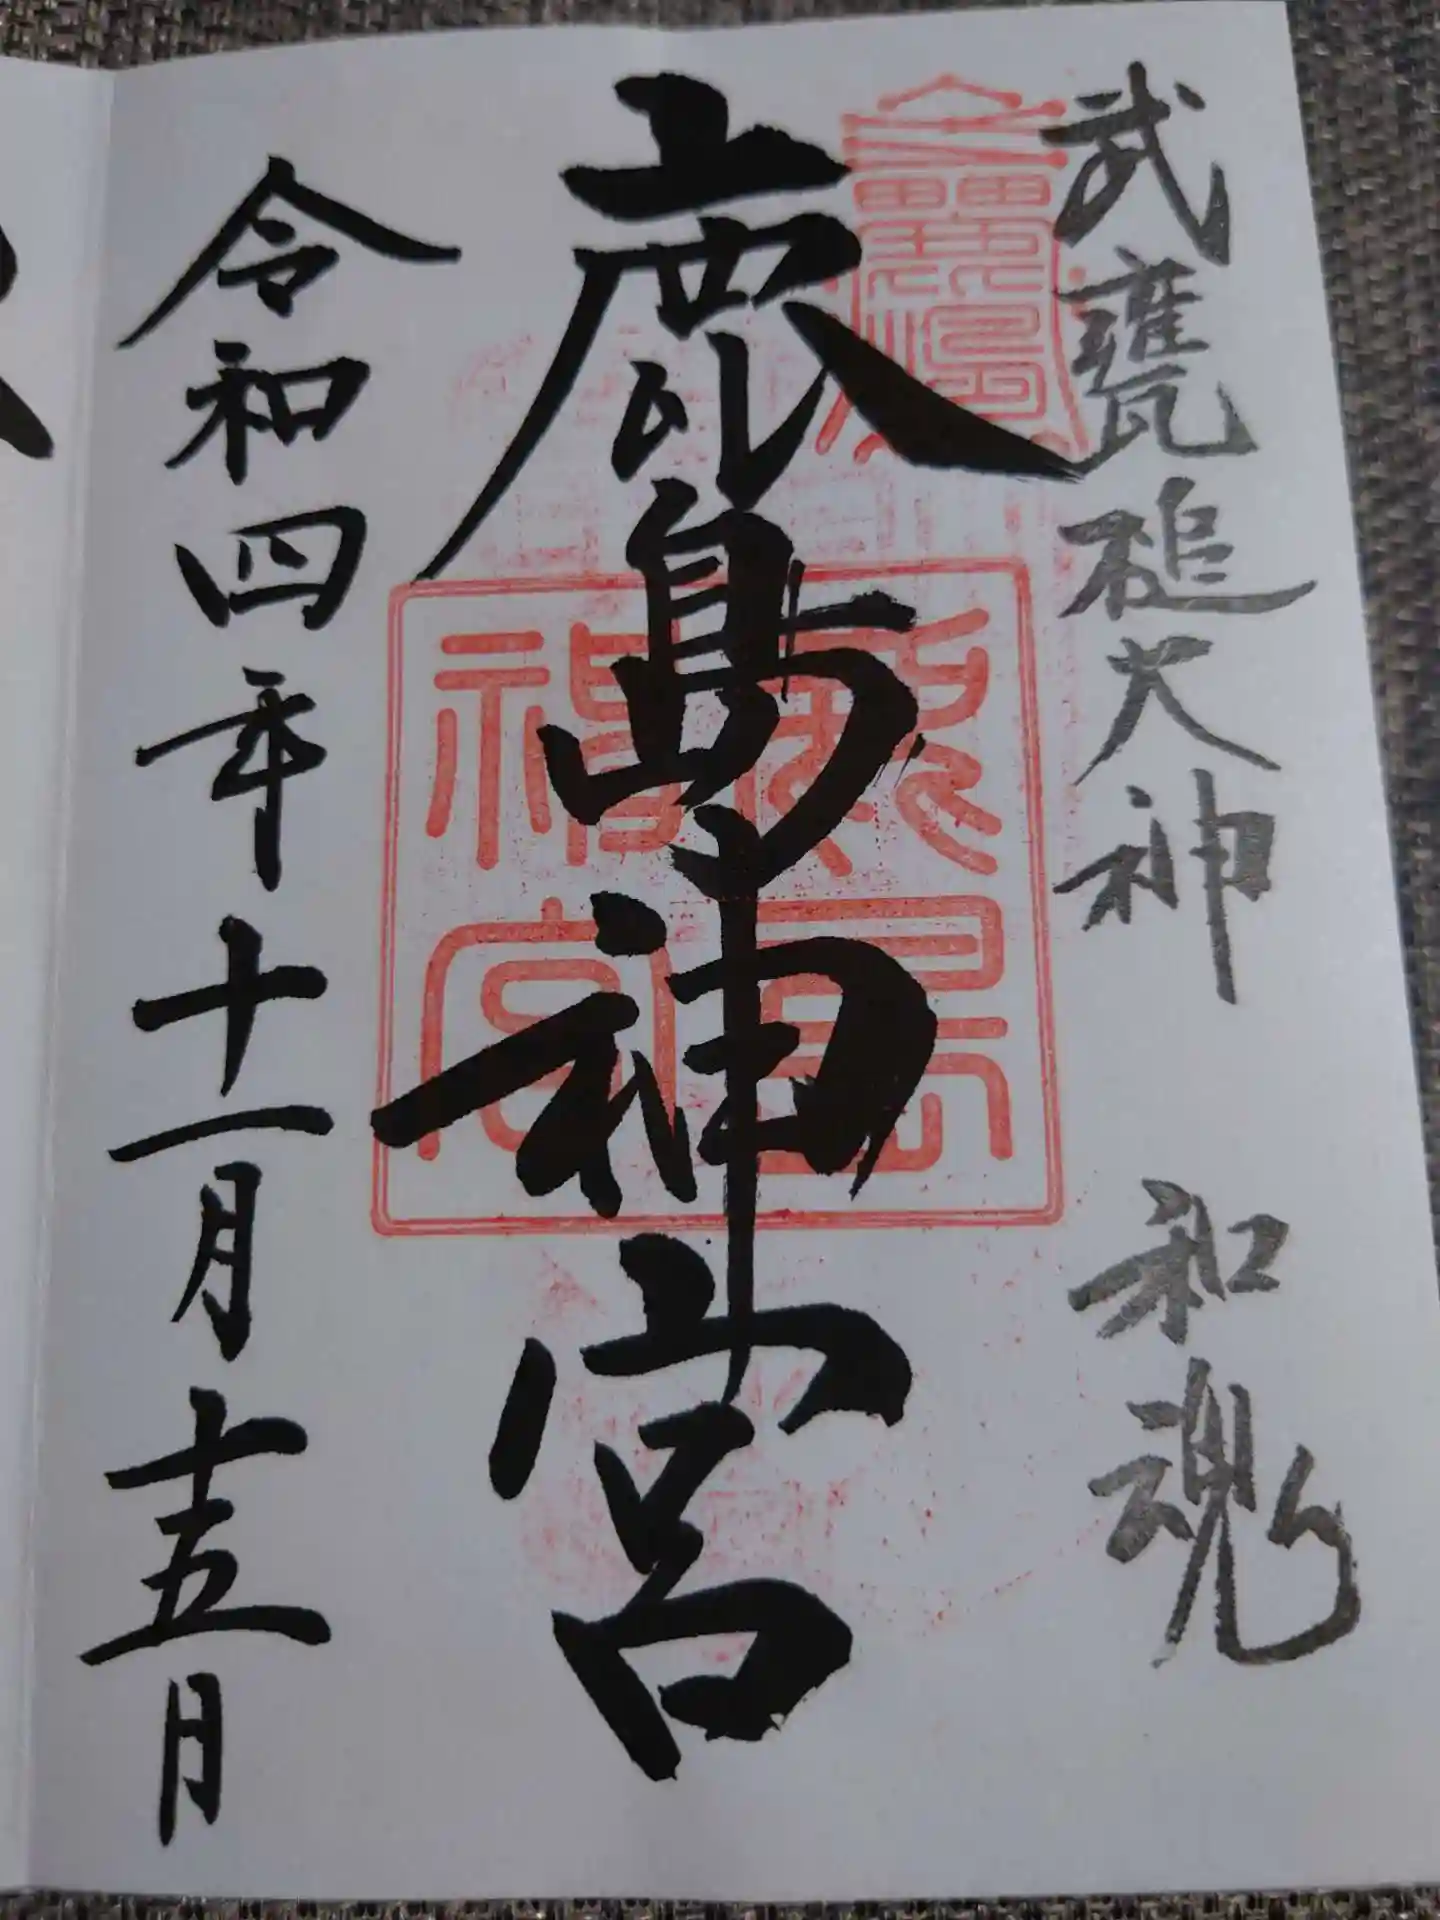 武甕槌大神 和魂
鹿島神宮
鹿島神宮
令和四年十一月十五日